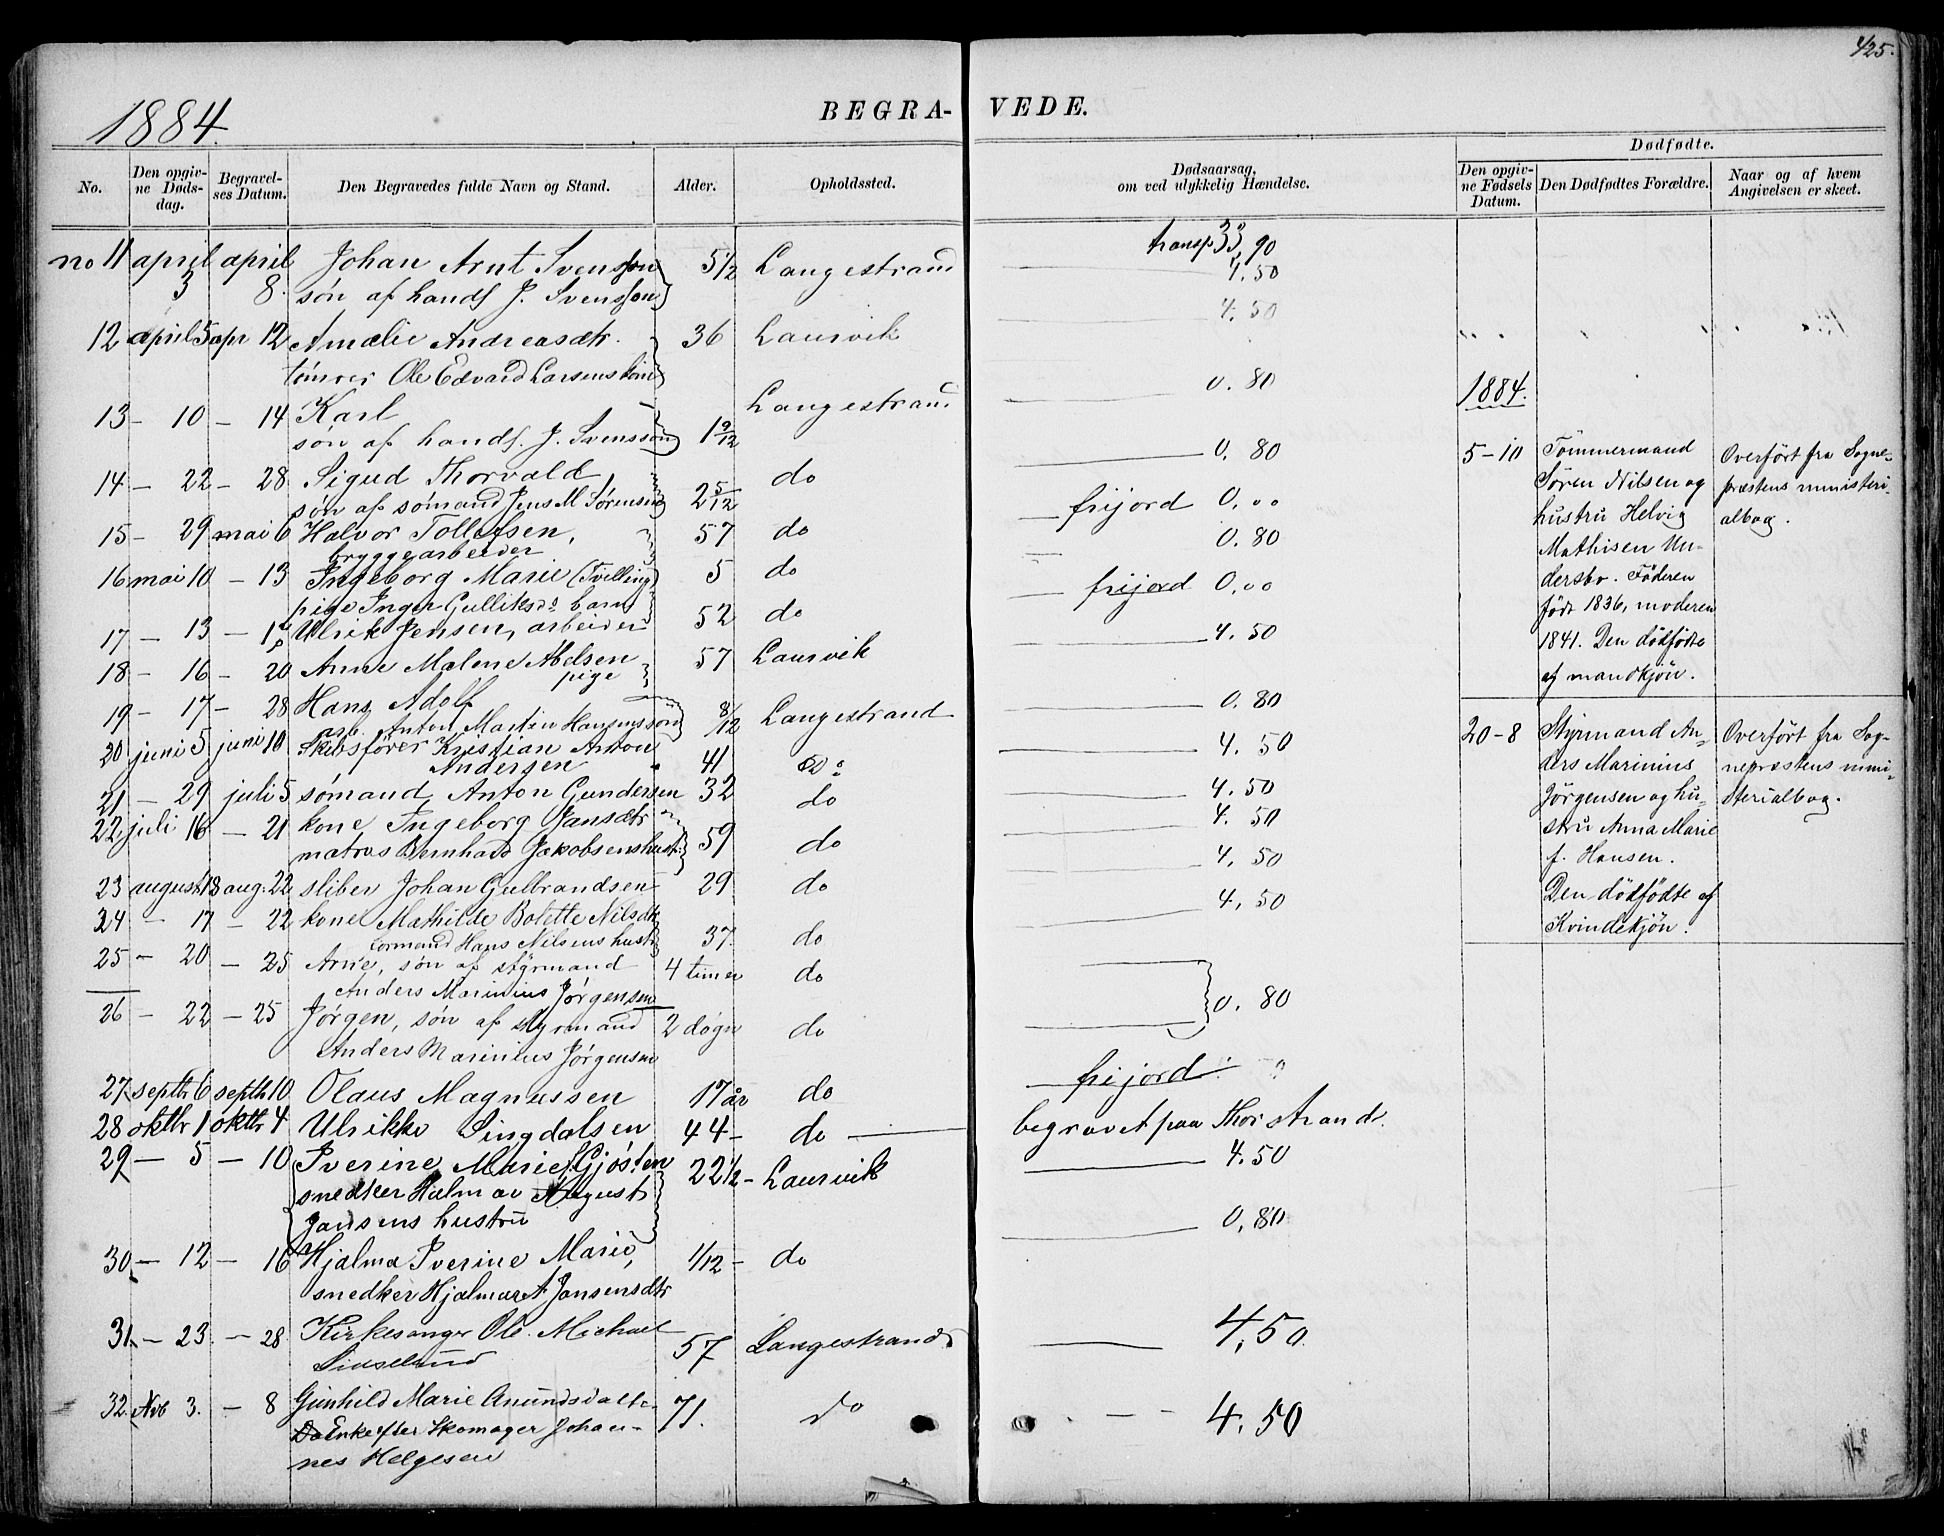 425.
1884.
BEGRA-
VEDE.
No.
Den opgiv-
ne Døds-
dag.
Begravel-
ses Datum.
Den Begravedes fulde Navn og Stand.
Alder.
Opholdssted.
Dødsaarsag,
om ved ulykkelig Hændelse.
Dødfødte.
Den opgiv-
ne Fødsels
Datum.
Den Dødfødtes Forældre.
Naar og af hvem
Angivelsen er skeet.
no 11 april april Johan Arnt Svensson 5 1/2 Langestrand
3 8. søn af handl J. Svensson
12 april 5 apr 12 Amalie Andreasdtr. 36 Laurvik
tømrer Ole Edvard Larsens
13 - 10 - 14 Karl 1 9/12 Langestrand
søn af handl. J. Svensson
14 - 22 - 28 Sigud Thorvald, 2 5/12 do
søn af sømand Jens M Sørensen
15 - 29 mai 6 Halvor Tollefsen, 57 do
bryggearbeider
16 mai 10 - 13 Ingeborg Marie (Tvilling) 5 do
pige Inger Gulliksds barn
17 - 13 - Ulrik Jensen, arbeider 52 do
18 - 16 - 20 Anne Malene Abelsen 57 Laurvik
pige
19 - 17 - 28 Hans Adolf 8/12 Langestrand
arb. Anton Martin Hansens søn
20 juni 5 juni 10 Skibsfører Kristian Anton
Andersen 41 Do
21 - 29 juli 5 sømand Anton Gundersen 32 do
22 juli 16 - 21 kone Ingeborg Jansdtr 59 do
matros Bernhard Jakobsens hust.
23 august 18 aug. 22 sliber Johan Gulbrandsen 29 do
24 - 17 - 22 kone Mathilde Bolette Nilsdtr
Hans Nilsens hustr 37. do
25 - 20 - 25 Arne, søn af styrmand 4 timer do
Anders Marinius Jørgensen
26 - 22 - 25 Jørgen, søn af styrmand 2 døgn do
Anders Marinius Jørgensen
27 septbr 6 septbr 10 Olaus Magnussen 17 år do
28 oktbr 1 oktbr 4 Ulrikke Singdalsen 44 - do
29 - 5 - 10 Iverine Marie Gjøsten 22 1/2 - Laurvik
snedker Hialmar August
Jansens hustru
30 - 12 - 16 Hjalma Iverine Marie, 1/12 - do
snedker Hjalmar A Jansens dtr
31 - 23. - 28 Kirkesanger Ole Michael 57 Langestrand
32. Nvb 3. - 8 Gunhild Marie Anundsdatt- 71. do
Enke efter Skomager Johan-
nes Helgesen
transp 33,90
4.50
4.50
0.80
0.80
frijord 0,00
0.80
frijord 0,00
4.50
0.80
4.50
4.50
4.50
4.50
4,50
0.80
frijord
begravet paa Thorstrand.
4.50
0,80
4,50.
4.50
1884.
5-10
Tømmermand
Søren Nilsen og
hustru Helvig
Mathisen Un-
dersbo. Føderen
født 1836, moderen
1841. Den dødfødte
af mandkjøn.
Overført fra Sogne-
præstens ministeri-
albog.
20-8
Styrmand An-
ders Marinius
Jørgensen og hu-
stru Anna Marie
f. Hansen.
Den dødfødte af
Kvindekjøn.
Overført fra Sog-
nepræstens mini-
sterialbog.